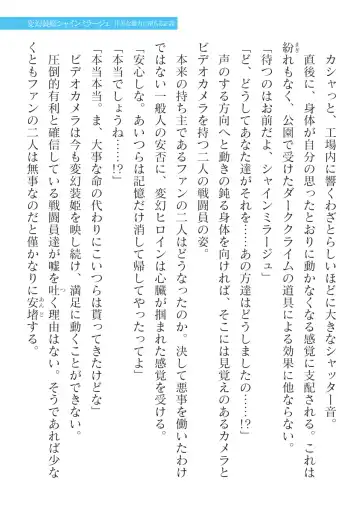 変幻装姫シャインミラージュ
カシャッと、工場内に響くわざとらしいほどに大きなシャッター音。
直後に、身体が自分の思ったとおりに動かなくなる感覚に支配される。これは
紛れもなく、公園で受けたダーククライムの道具による効果に他ならない。
「待つのはお前だよ、シャインミラージュ」
「ど、どうしてあなた達がそれを……あの方達はどうしましたの……!?」
声のする方向へと動きの鈍る身体を向ければ、そこには見覚えのあるカメラと
ビデオカメラを持つ二人の戦闘員の姿。
本来の持ち主であるファンの二人はどうなったのか。決して悪事を働いたわけ
でない一般人の安否に、変幻ヒロインは心臓が掴まれた感覚を受ける。
「安心しな。あいつらは記憶だけ消して帰してやったってよ」
「本当でしょうね……!?」
「本当本当。ま、大事な命の代わりにこいつらは貰ってきたけどな」
ビデオカメラは今も変幻装姫を映し続け、満足に動くことができない。
圧倒的有利と確信している戦闘員達が嘘を吐く理由はない。そうであれば少な
くともファンの二人は無事なのだと僅かなりに安堵する。